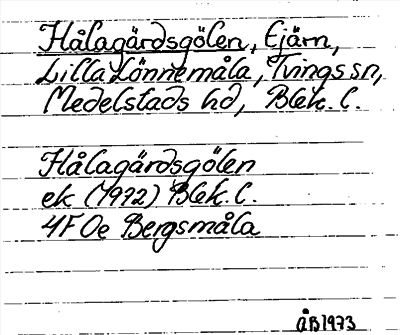 Hålagärdsgölen, Ejärn,
Lilla Lönnemåla, Tvings sn,
Medelstads hd, Blek. l.
Hålagärdsgölen
ek (1972) Blek. l.
4F Oe Bergsmåla
ÅB 1973